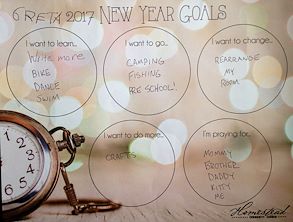 GRETA 2017 NEW YEAR GOALS
I want to learn..
Write more
BIKE
DANCE
SWIM
I want to go...
CAMPING
FISHING
PRE SCHOOL!
I want to change...
REARRANGE
MY
ROOM
I want to do more...
CRAFTS
I'm praying for...
MOMMY
BROTHER
DADDY
KITTY
ME
Homestead